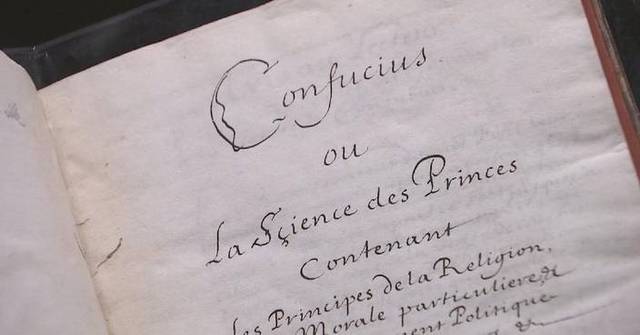 Confucius.
ou
La Sçience des Princes
Contenant
les Principes de la Religion,
Morale particuliere, &
Politique